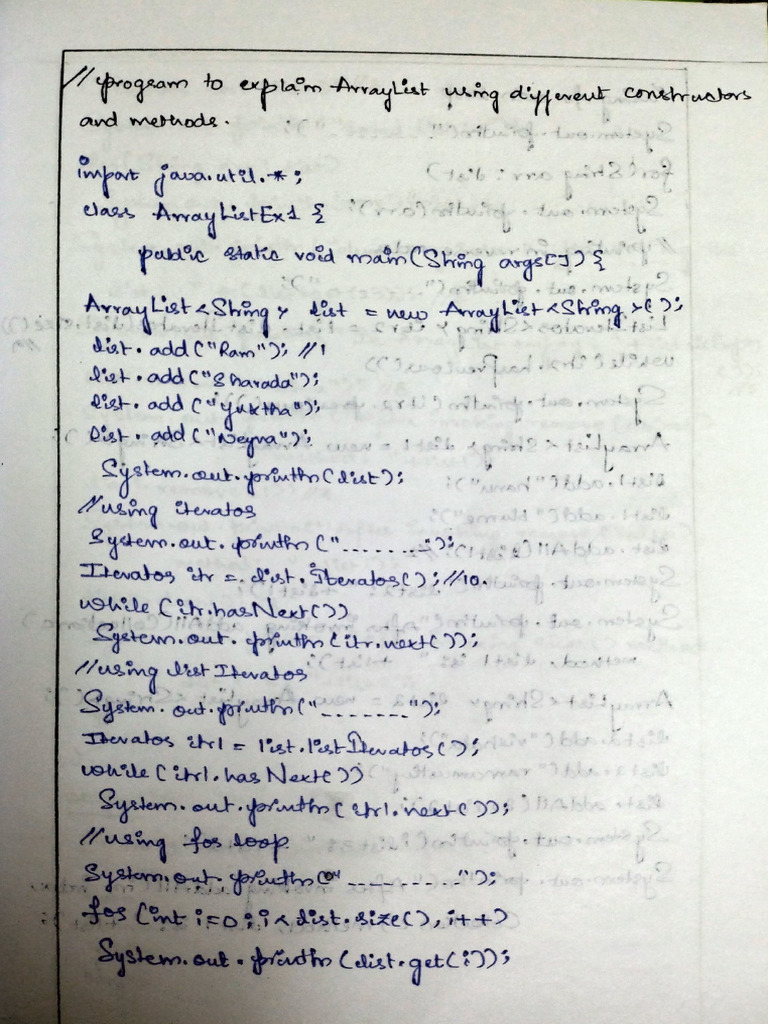 // program to explain ArrayList using different constructors
and methods.
import java.util.*;
class ArrayListEx1 {
public static void main(String args[]) {
ArrayList<String> list = new ArrayList<String>();
list.add("Ram"); //1
list.add("Sharada");
list.add("Yuktha");
list.add("Neyva");
System.out.println(list);
//using iterator
System.out.println("........");
Iterator itr = list.Iterator(); //10.
while (itr.hasNext())
System.out.println(itr.next());
//using listIterator
System.out.println("_______");
Iterator itr1 = list.listIterator();
while (itr1.hasNext())
System.out.println(itr1.next());
//using for loop
System.out.println("_________");
for (int i=0; i<list.size(), i++)
System.out.println(list.get(i));